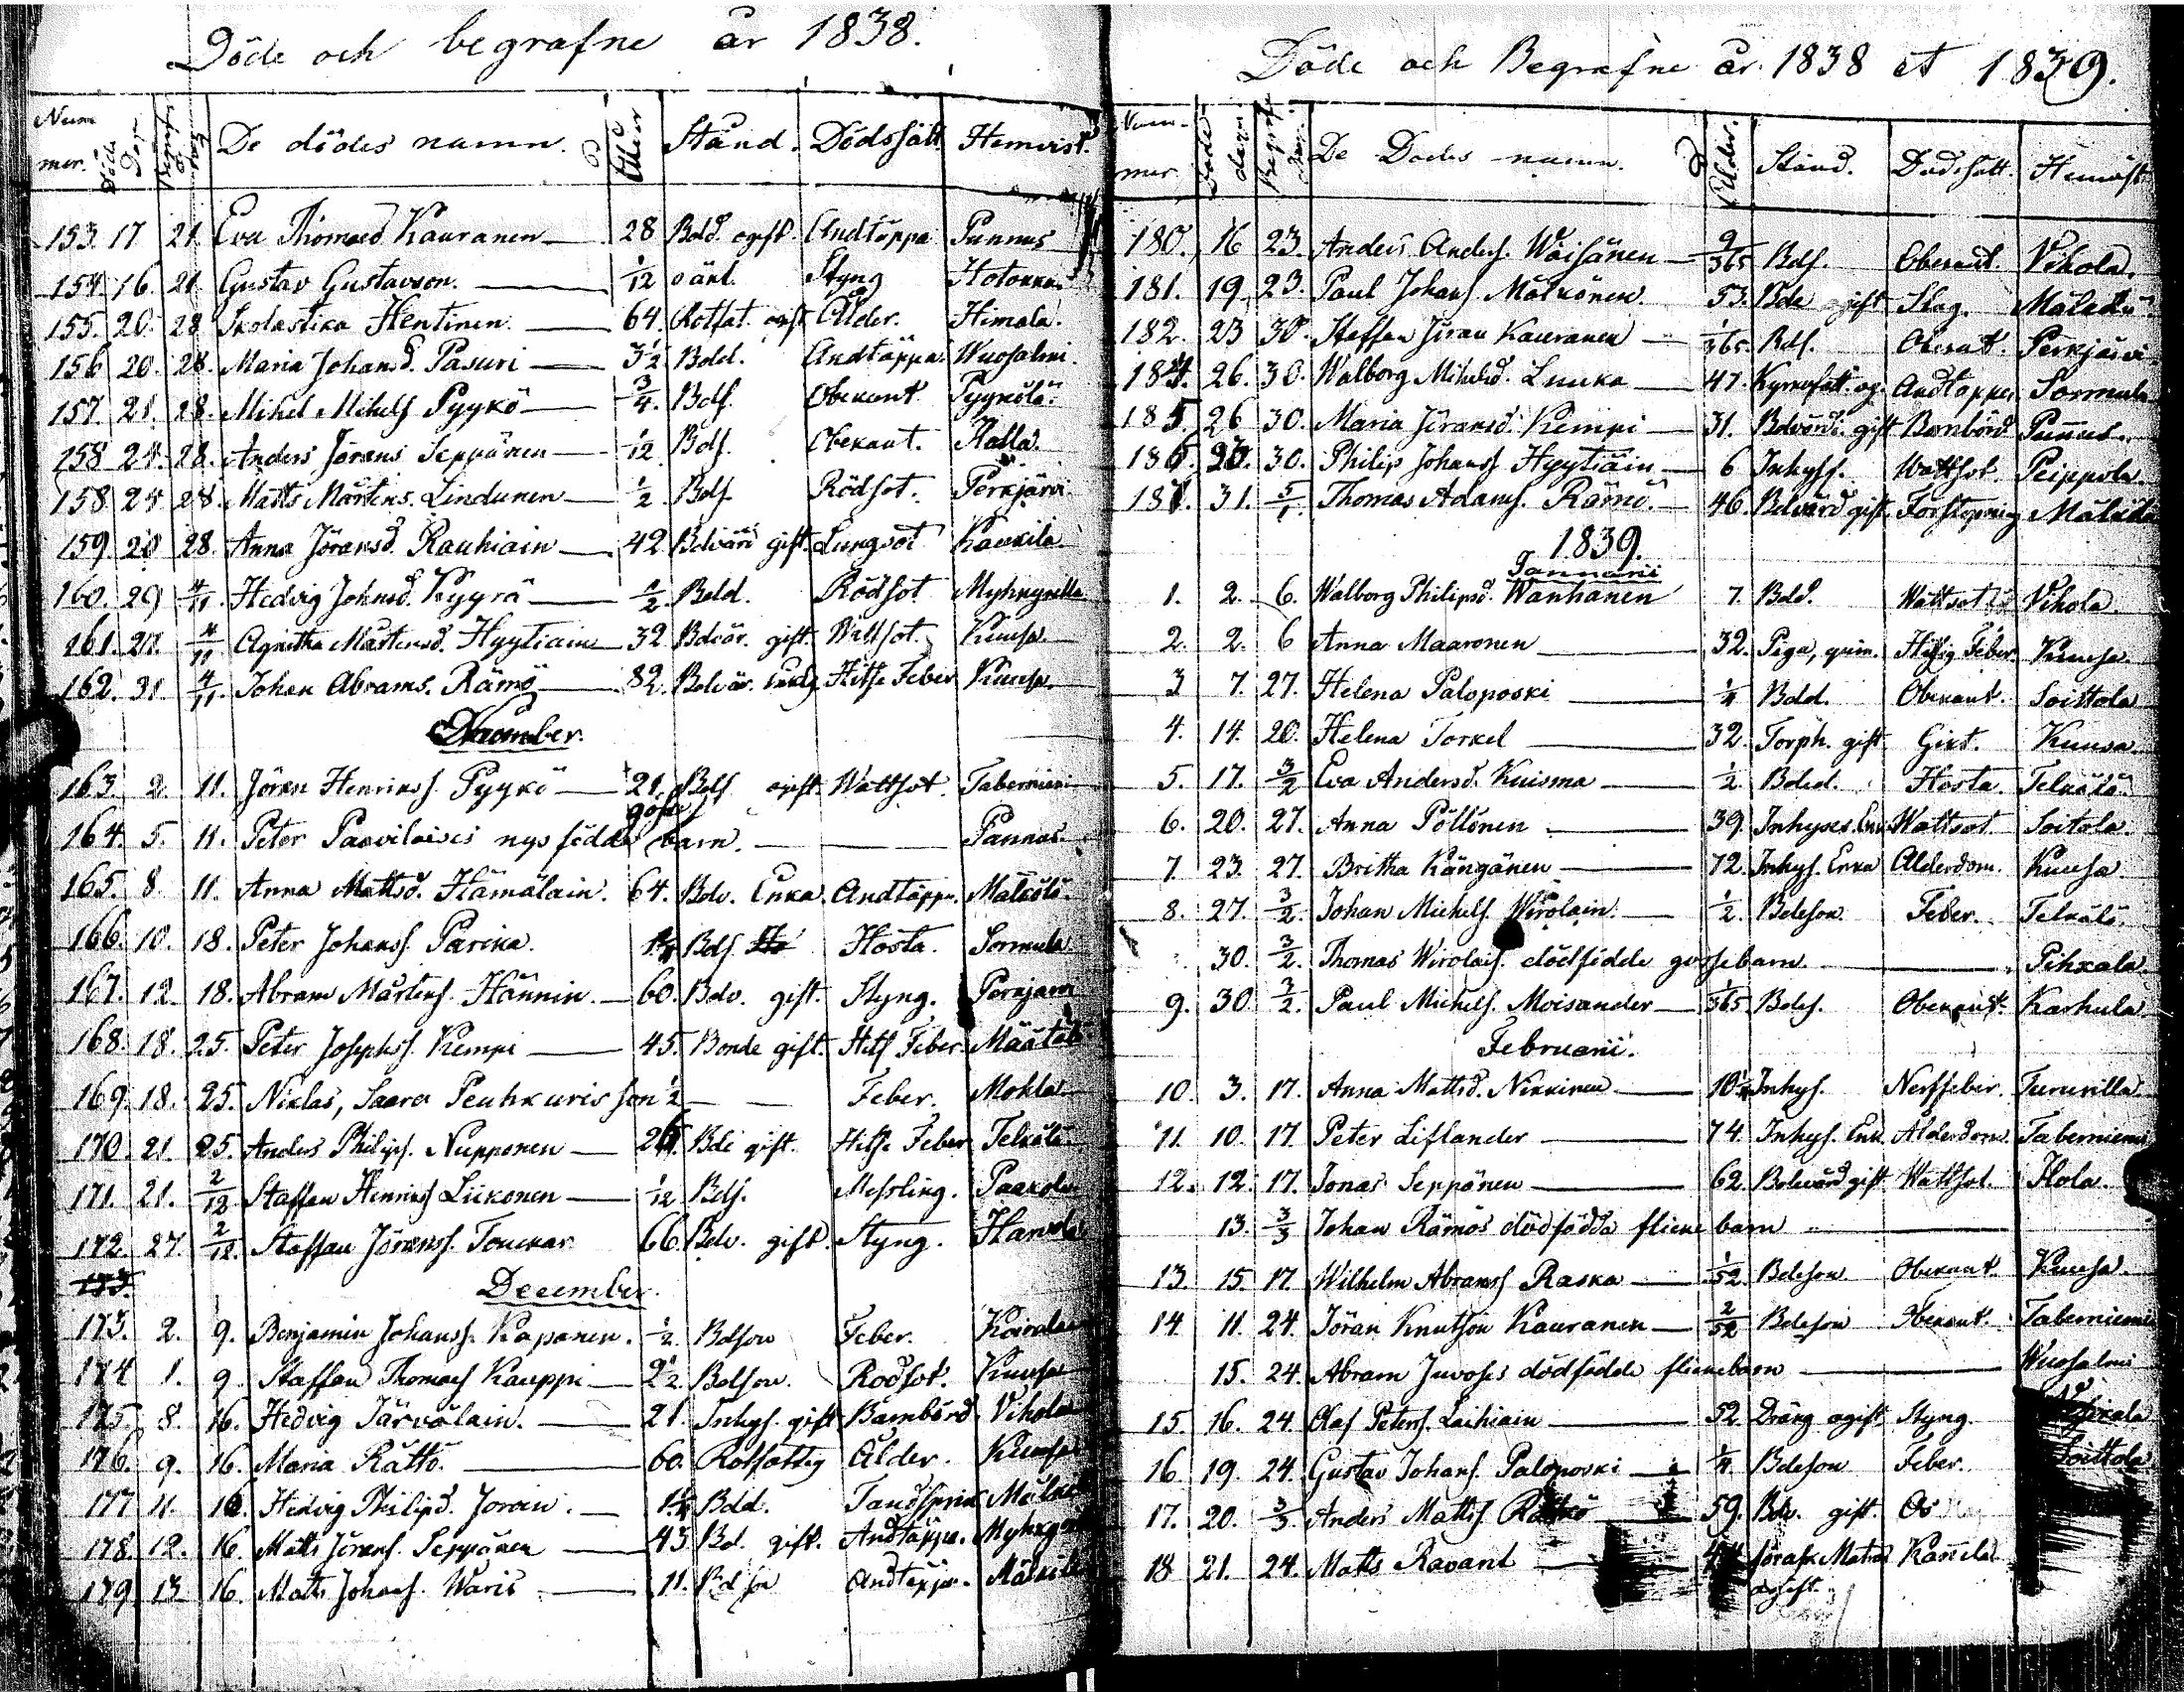 Döde och begrafne år 1838.
Nummer. Döde Dag Begrafn. dag De dödes namn. Ålder Stånd. Dödssätt Hemvist.
153. 17 21. Eva Thomasd Kauranen 28 Bdd. ogift. Andtäppa Punnus
154. 16. 21. Gustav Gustavson. 1/12 oäkt. Styng
155. 20. 28. Skolastika Hentinen 64. Rotfat. Ålder. Himala.
156 20. 28. Maria Johansd. Pasuri 3 1/2 Bdd. Andtäppa. Wuosalmi
157. 21. 28. Mihel Mihels Pyykö 3/4. Bdf. Obekant Pyykölä.
158 24. 28. Anders Jörans Seppänen 1/12 Bdf. Obekant. Ralla.
158 24 28. Matts Mårtens. Lindunen 1/2. Bdf Rödsot. Perkjärvi
159 28. Anna Jöransd. Rauhiain 42 Bdvärd gift. Lungsot Kaukila.
160. 29 4/11. Hedvig Johnsd. Kyyrä 1/2. Bdd. Rödsot
161. 4/11 Agnetha Mårtensd. Hyytiäin 32 Bdvär. gift. Wattsot. Kuusa
162. 31. 4/11. Johan Abrams. Rämö 82. Bdvär. Enkl. Hitse Feber Kuusa.
163. 2. 11. Jöran Henrikss. Pyykö 21. Bdf ogift. Wattsot. Taberniemi
164. 5. 11. Peter Paavilaises nyss födde gosse barn. Pannus
165. 8 11. Anna Mattsd. Hämäläin. 64. Bdv. Enka. Andtäppa. Mälkölä.
166. 10. 18. Peter Johanss. Parika. Bdf Hosta. Sormula
167. 12. 18. Abram Mårtens. Hännin. 60. Bdv. gift. Styng.
168. 18. 25. Peter Josephs. Kempi 45. Bonde gift. Hits Feber.
169. 18. 25. Niklas, Saara Peuhkuris son 1/2 Feber. Mokla
170. 21. 25. Anders Philips. Nupponen Bde gift. Hitse Feber Telkälä.
171. 21. 2/12 Staffan Henriks Liikonen 1/12 Bdf. Messling.
172. 27. 2/12. Staffan Jörans. Touckar 66. Bdv. gift. Styng.
December.
173. 2. 9. Benjamin Johanss. Kaponen. 1/2. Bdson Feber.
174 1. 9. Staffan Thomas Kauppi 2 1/2. Bdson. Rödsot. Kuusa
175. 8. 16. Hedvig Järvöläin. 21. Inhys. gift Barnbörd Vikola
176. 9. 16. Maria Rättö. 60. Rotfattig Ålder. Kuusa
177 11. 16. Hedvig Philipsd. Bdd.
178. 12. 16. Matts Jörans. Seppänen 43. Bd. gift. Andtäppa.
179. 13. 16. Matts Johans. Waris 11. Bd son Andtäppa.
Döde och Begrafne år. 1838 et 1839.
Nummer. Döde dag Begrafn. dag. De Dödes namn. Ålder. Stånd. Dödssätt. Hemvist.
180. 16 23. Anders Anders. Wäisänen 9/365 Bdf. Obekant. Vikola.
181. 19 23. Paul Johans. Mälkönen. 53. Bde gift Slag.
182. 23 30. Steffan Jöran Kauranen 1/365. Bdf. Obekant. Perkjärvi
26. 30. Walborg Mihelsd. Luuka 47. Andtäppa Sormula
185. 26 30. Maria Jöransd. Kempi 31. Bdvärd. gift Barnbörd Punnus.
186. 30. Philip Johans Hyytiäin 6 Inhyss. Wattsot. Peippola.
187. 31. 5/1 Thomas Adams. Rämö. 46. Bdvärd gift. Förstopning
1839.
Januarii
1. 2. 6. Walborg Philipsd. Wanhanen 7. Bdd. Wattsot Vikola.
2. 2. 6 Anna Maaronen 32. Piga, Hitsig Feber Kuusa.
3 7. 27. Helena Paloposki 1/4 Bdd. Obekant. Soittola
4. 14. 20. Helena Torkel 32. Torph. gift Gikt. Kuusa
5. 17. 3/2 Eva Andersd. Kuisma 1/2. Bded. Hosta. Telkälä
6. 20. 27. Anna Pöllönen 39. Inhyses. Enk. Wattsot. Soitola.
7 23. 27. Britha Kängänen 72. Inhys. Enka Ålderdom. Kuusa
8. 27. 3/2. Johan Michels. Wirolain. 1/2. Bdeson. Feber. Telkälä.
30. 3/2. Thomas Wirolais. dödfödde gossebarn. Pihkala.
9. 30. 3/2. Paul Michels. Moisander 1/365 Bdes. Obekant Karhula.
Februarii.
10. 3. 17. Anna Mattsd. Nikkinen Inhys. Nerffeber.
11. 10. 17. Peter Liflander 74 Inhys. Enk. Ålderdom. Taberniemi
12. 12. 17. Jonas Seppänen 62. Bdevärd gift Wattsot. Ilola.
13. 3/3 Johan Rämös dödfödda flickebarn
13. 15. 17. Wilhelm Abrams Raska 1/52 Bdeson Obekant. Kuusa
14. 11. 24. Jöran Knutson Kauranen 2/52 Bdeson Obekant. Taberniemi
15. 24. Abram Juvoses dödfödde flickebarn Wuosalmi
15. 16. 24. Olaf Peters. Laihiain 52. Dräng ogift Styng.
16. 19. 24. Gustav Johans. Paloposki 1/4 Bdeson Feber. Soittola
17. 20. 3/3. Anders Matts. 59. Bdv. gift.
18 21. 24. Matts Ravant
ogift.